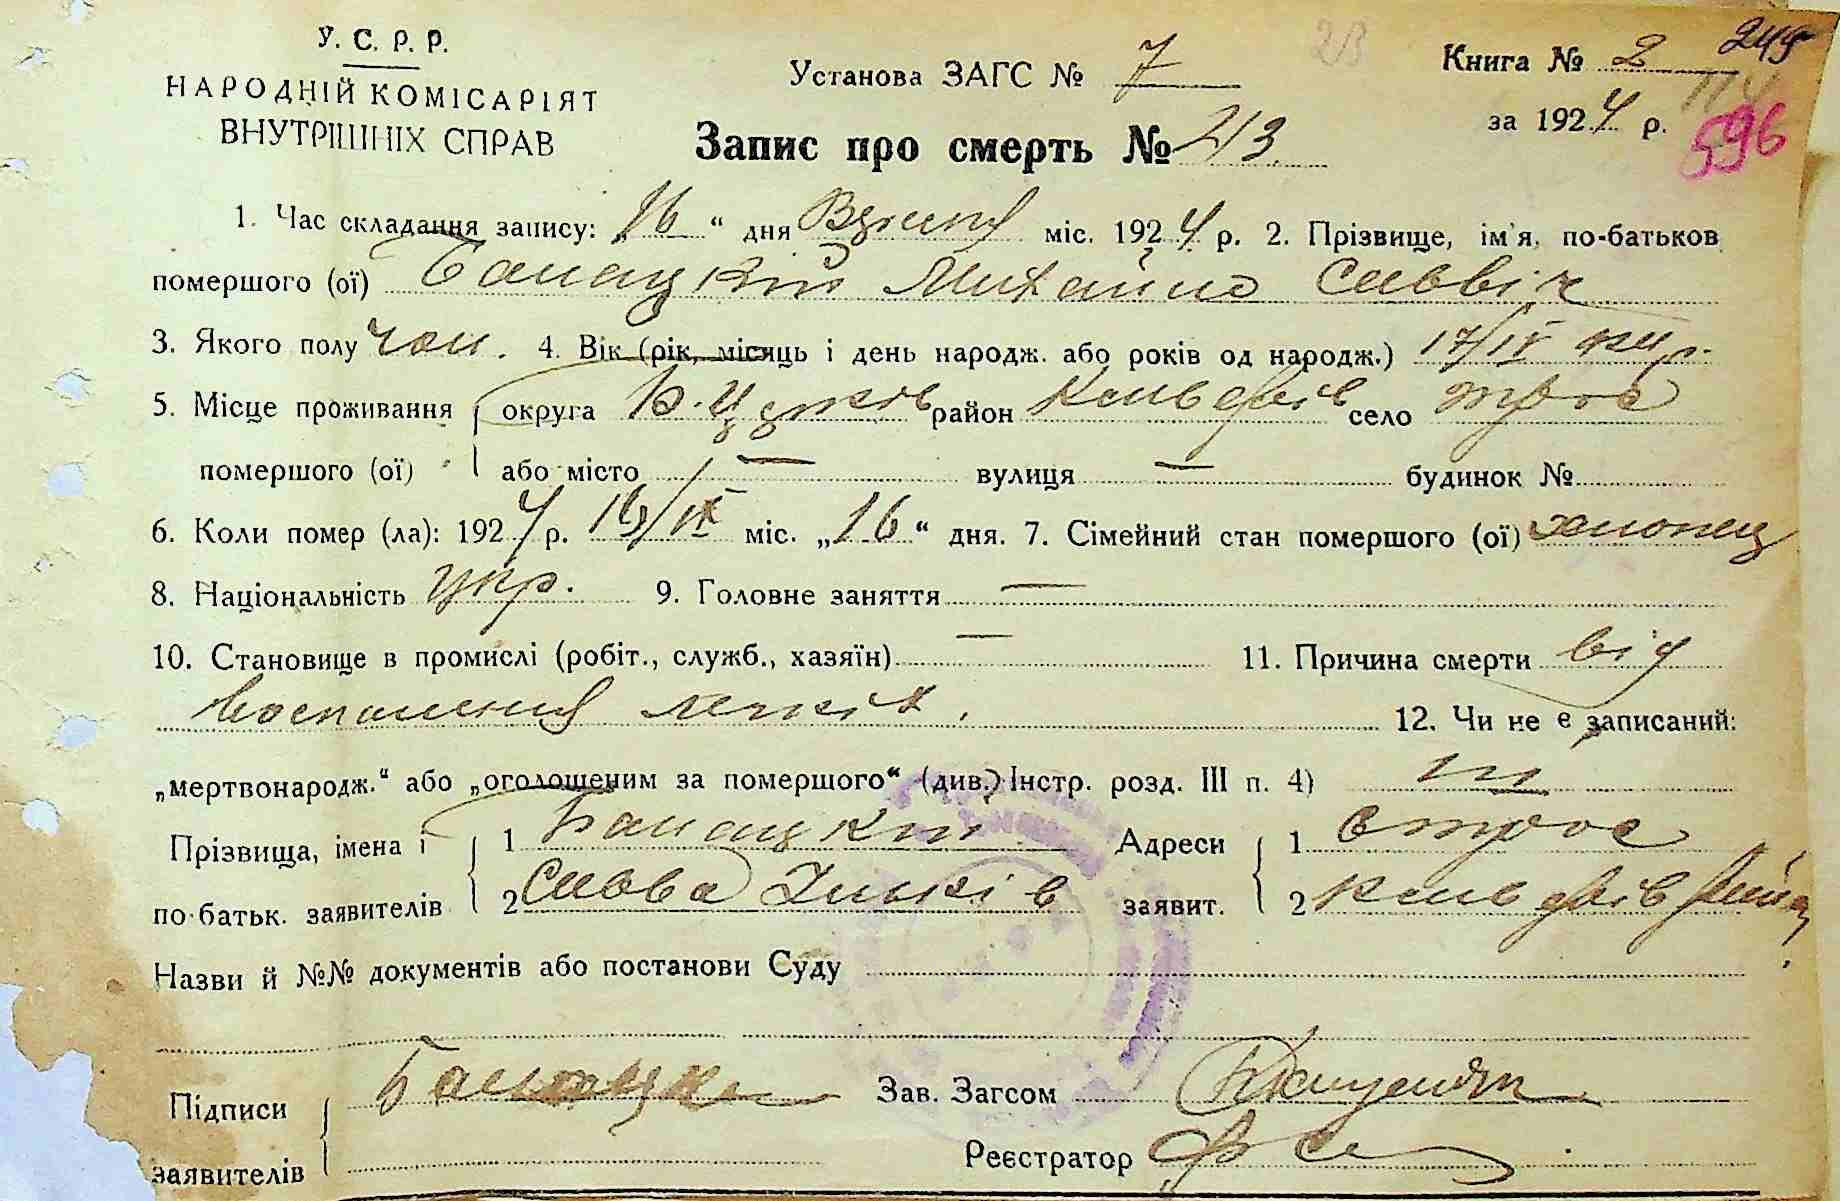 У. С. Р. Р.
НАРОДНІЙ КОМІСАРІЯТ
ВНУТРІШНІХ СПРАВ
Установа ЗАГС № 7
23
Книга № 2 244
за 1924 р. 114
596
Запис про смерть № 213
1. Час складання запису: „16“ дня Вересня міс. 1924 р. 2. Прізвище, ім'я, по-батьков
помершого (ої) Балацкій Михайло Саввіч
3. Якого полу чол. 4. Вік (рік, місяць і день народж. або років од народж.) 17/IV
5. Місце проживання округа Б. Церків район село
помершого (ої) або місто — вулиця — будинок №
6. Коли помер (ла): 1924 р. 16/IX міс. „16“ дня. 7. Сімейний стан помершого (ої) хлопец
8. Національність укр. 9. Головне заняття —
10. Становище в промислі (робіт., служб., хазяїн) — 11. Причина смерти від
воспаления легких.
12. Чи не є записаний:
„мертвонародж.“ або „оголошеним за помершого“ (див. Інстр. розд. III п. 4) ні
Прізвища, імена і 1 Балацкий Адреси 1
по батьк. заявителів 2 Савва заявит. 2
Назви й №№ документів або постанови Суду
Підписи Балацки Зав. Загсом
заявителів Реєстратор